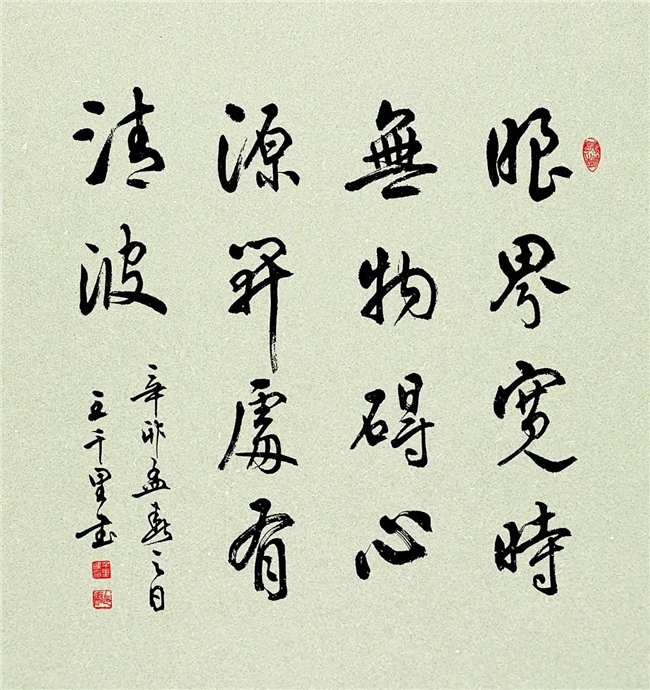 眼界寬時
無物碍心
源開處有
清波
辛卯孟春之日
王千里書